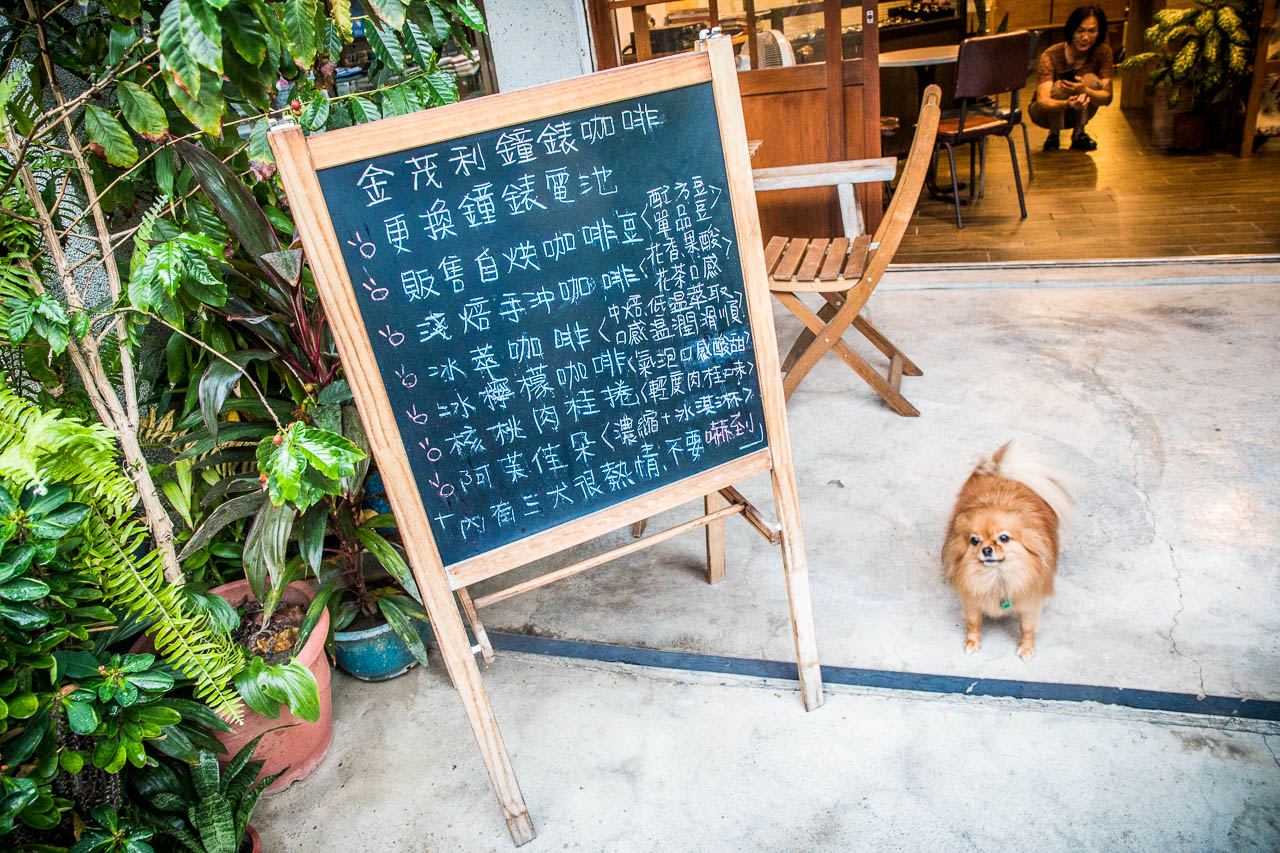 金茂利鐘錶咖啡
更換鐘錶電池
販售自烘咖啡豆〈配方豆 單品豆〉
淺焙手沖咖啡〈花香果酸 花茶口感〉
冰萃咖啡〈中焙,低溫萃取 口感溫潤滑順〉
冰檸檬咖啡〈氣泡口感酸甜〉
核桃肉桂捲〈輕度肉桂味〉
阿芙佳朵〈濃縮+冰淇淋〉
+內有三犬很熱情,不要嚇到